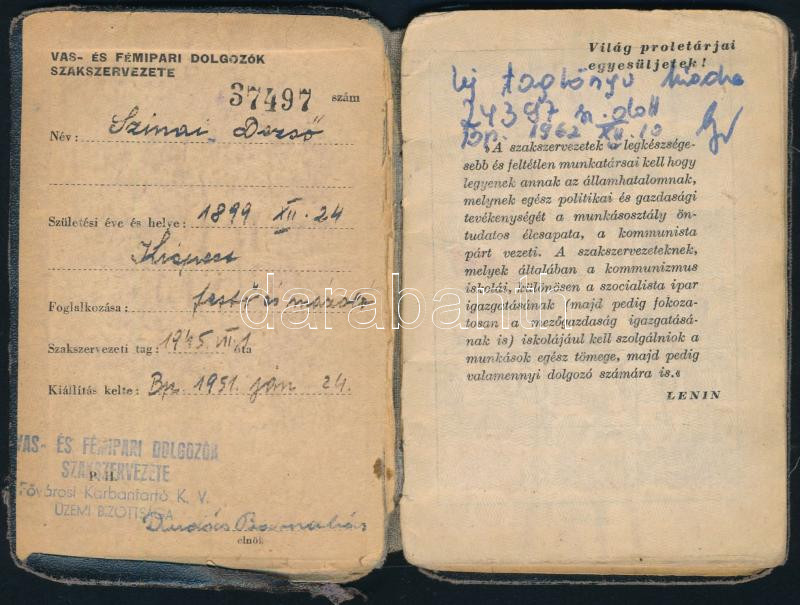 VAS- ÉS FÉMIPARI DOLGOZÓK
SZAKSZERVEZETE
37497 szám
Név: Szinai Dezső
Születési éve és helye: 1899 XII. 24
Kispest
Foglalkozása: festő és mázoló
Szakszervezeti tag: 1945. VII. 1 óta
Kiállítás kelte: Bp. 1951. jan. 24.
VAS- ÉS FÉMIPARI DOLGOZÓK
SZAKSZERVEZETE
P. H.
Fővárosi Karbantartó K. V.
ÜZEMI BIZOTTSÁGA
Dudás Barnabás
elnök
Világ proletárjai
egyesüljetek!
Uj tagkönyv kiadva
24397 sz. alatt
Bp. 1962 XII. 10
„A szakszervezetek a legkészsége-
sebb és feltétlen munkatársai kell hogy
legyenek annak az államhatalomnak,
melynek egész politikai és gazdasági
tevékenységét a munkásosztály ön-
tudatos élcsapata, a kommunista
párt vezeti. A szakszervezeteknek,
melyek általában a kommunizmus
iskolái, különösen a szocialista ipar
igazgatásának (majd pedig fokoza-
tosan a mezőgazdaság igazgatásá-
nak is) iskolájául kell szolgálniok a
munkások egész tömege, majd pedig
valamennyi dolgozó számára is.«
LENIN
darabanth